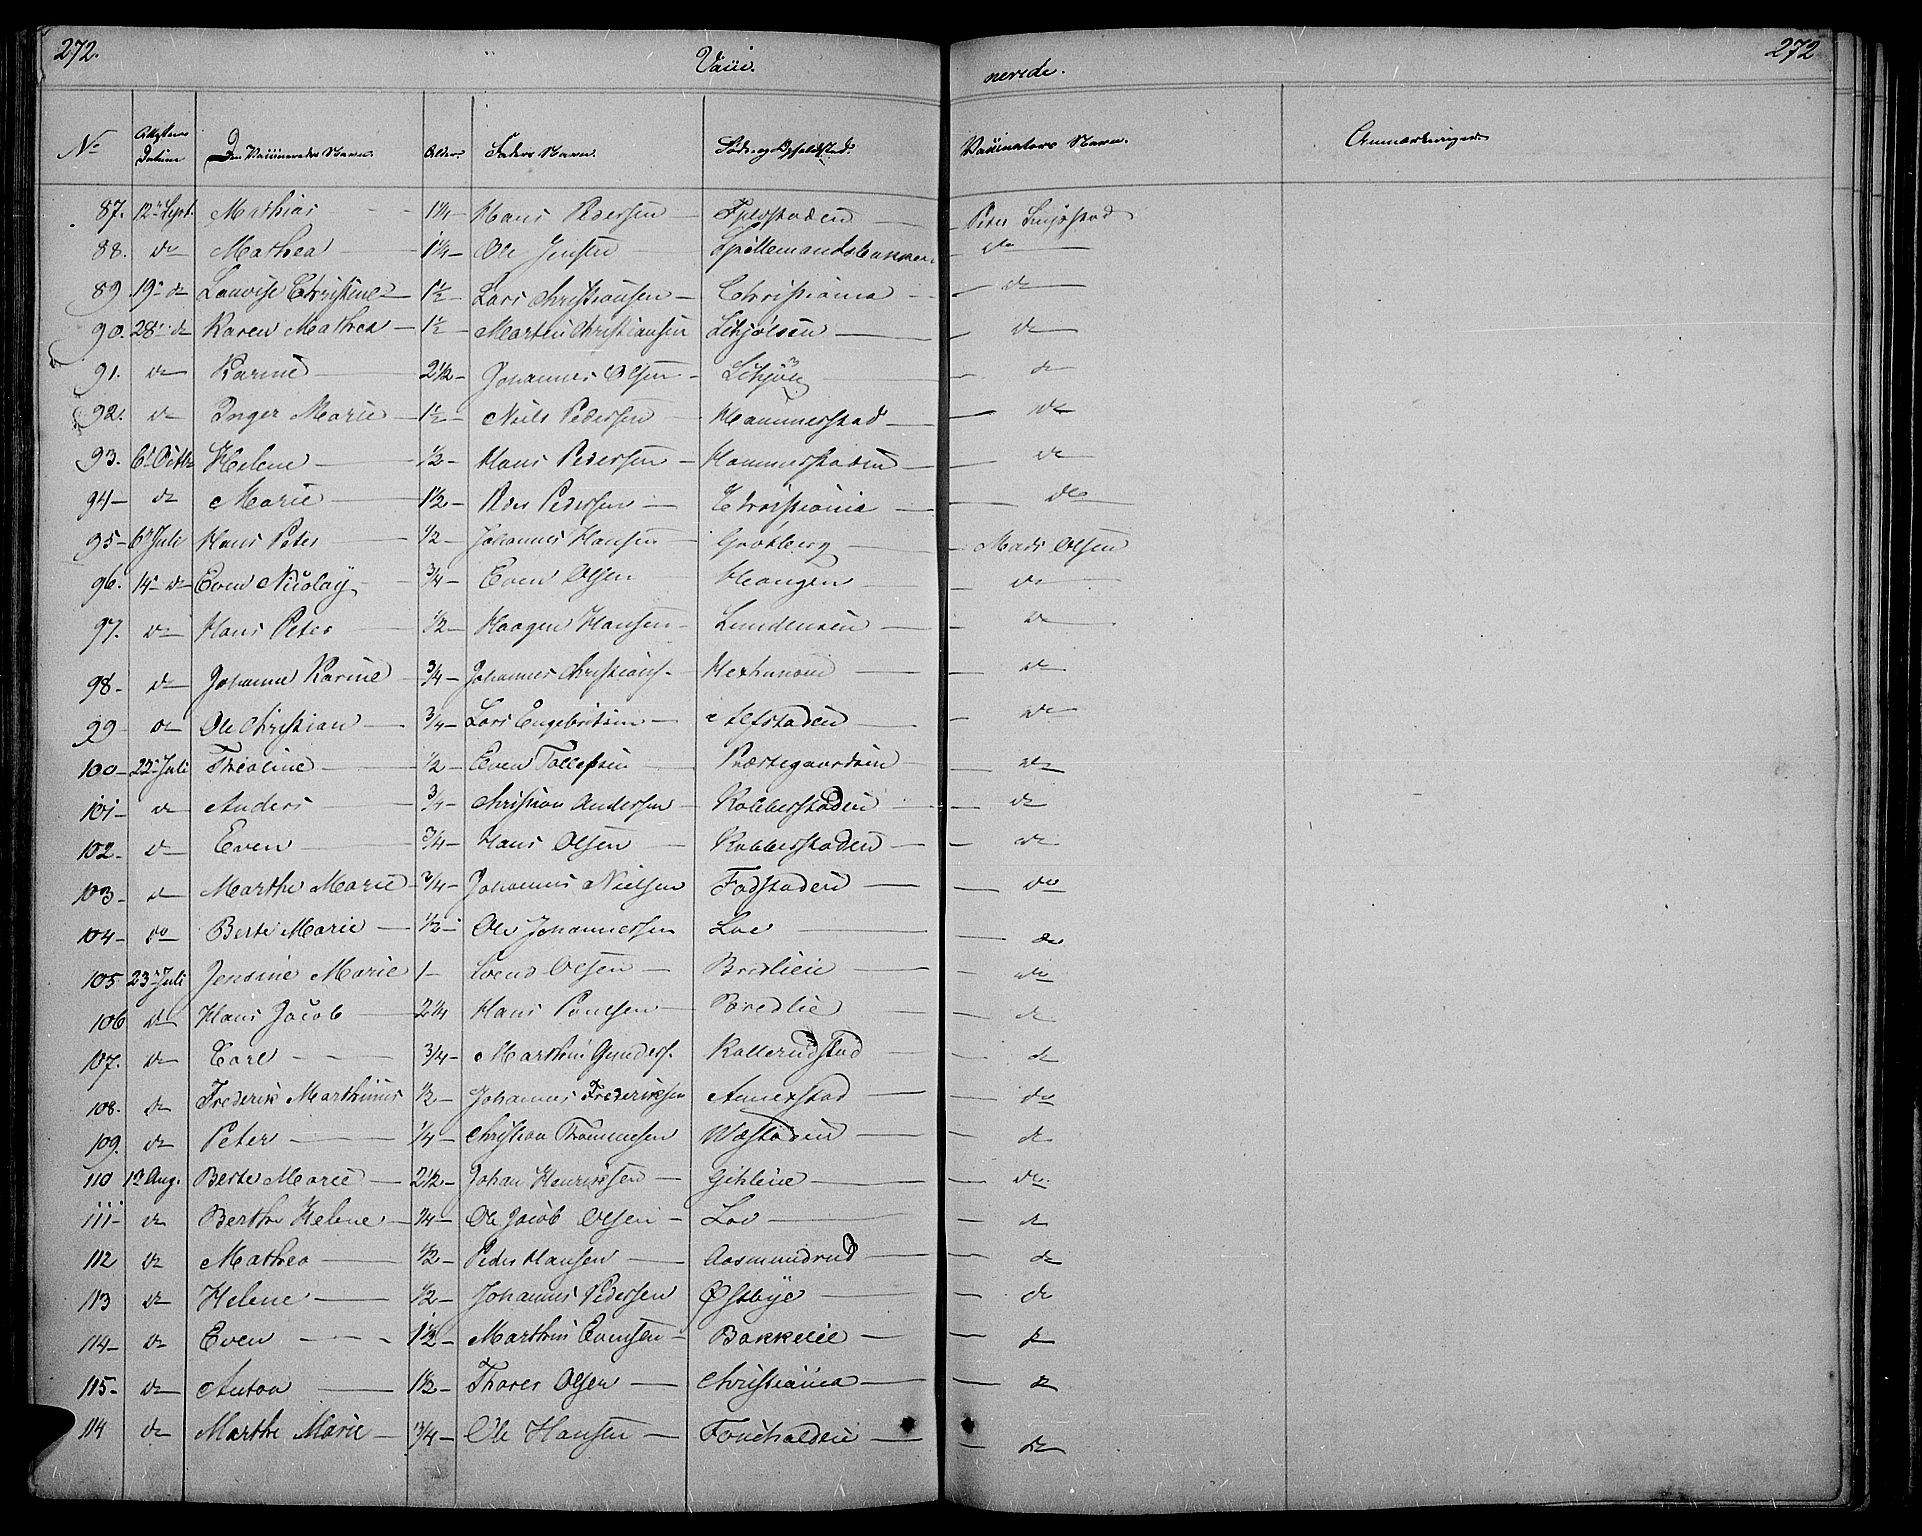 272. Vacci- nerede. 272
No Attestens Datum Den Vaccineredes Navn. Alder. Faders Navn. Føde og Opholdsted. Vaccinators Navn. Anmærkninger.
87. 12te Sept. Mathias 1 1/4 Hans Pedersen Peter
88. do Mathea 1 1/4 Ole Jensen Spillemandsbakken do
89 19de do Lauvise Christine 1 1/2 Lars Christiansen Christiania do
90. 28de do Karen Mathea 1 1/2 Marten Christiansen Schjølsen do
91. do Karine 2 1/2 Johannes Olsen Schjöll do
92. do Inger Marie 1 1/2 Niels Pedersen Hammerstad do
93. 6te Octbr Helene 1/2 Hans Pedersen Hammerstaden do
94 do Marie 1 1/2 Peder Pedersen Christiania do
95 6te Juli Hans Peter 1/2 Johannes Hansen Grøtberg Mads Olsen
96. 14de do Even Nicolay 3/4 Even Olsen Haugen do
97. do Hans Peter 1/2 Haagen Hansen do
98 do Johanne Karine 3/4 Johannes Christians. do
99 do Ole Christian 3/4 Lars Engebretsen Alfstaden do
100 22de Juli Theoline 1/2 Even Tollefsen Præstegaardseie do
101 do Anders 3/4 Christian Andersen Kolbberstaden do
102 do Even 3/4 Hans Olsen Kolbberstaden do
103 do Marthe Marie 3/4 Johannes Nielsen Fodstaden do
104 do Berte Marie 1/2 Ole Johannessen Loe do
105 23de Juli Jensine Marie 1 Svend Olsen Bredlieie do
106 do Hans Jacob 2 1/4 Hans Poulsen Bredlie do
107. do Carl 3/4 Marthin Gunders. Kallerudstad do
108. do Frederik Marthinus 1/2 Johannes Frederiksen Annexstad do
109. do Peter 1/4 Christian Thommesen Wæstaden do
110 1te Aug. Berte Marie 2 1/2 Johan Henriksen Gihleie do
111 do Berthe Helene 1/4 Ole Jacob Olsen Loe do
112 do Mathea 1/2 Peder Hansen Aasmundrud do
113 do Helene 1/2 Johannes Pedersen Østbye do
114 do Even 1 1/2 Marthin Evensen Bakkeie do
115 do Anton 1 1/2 Thorer Olsen Christiania do
114 do Marthe Marie 1 3/4 Ole Hansen do